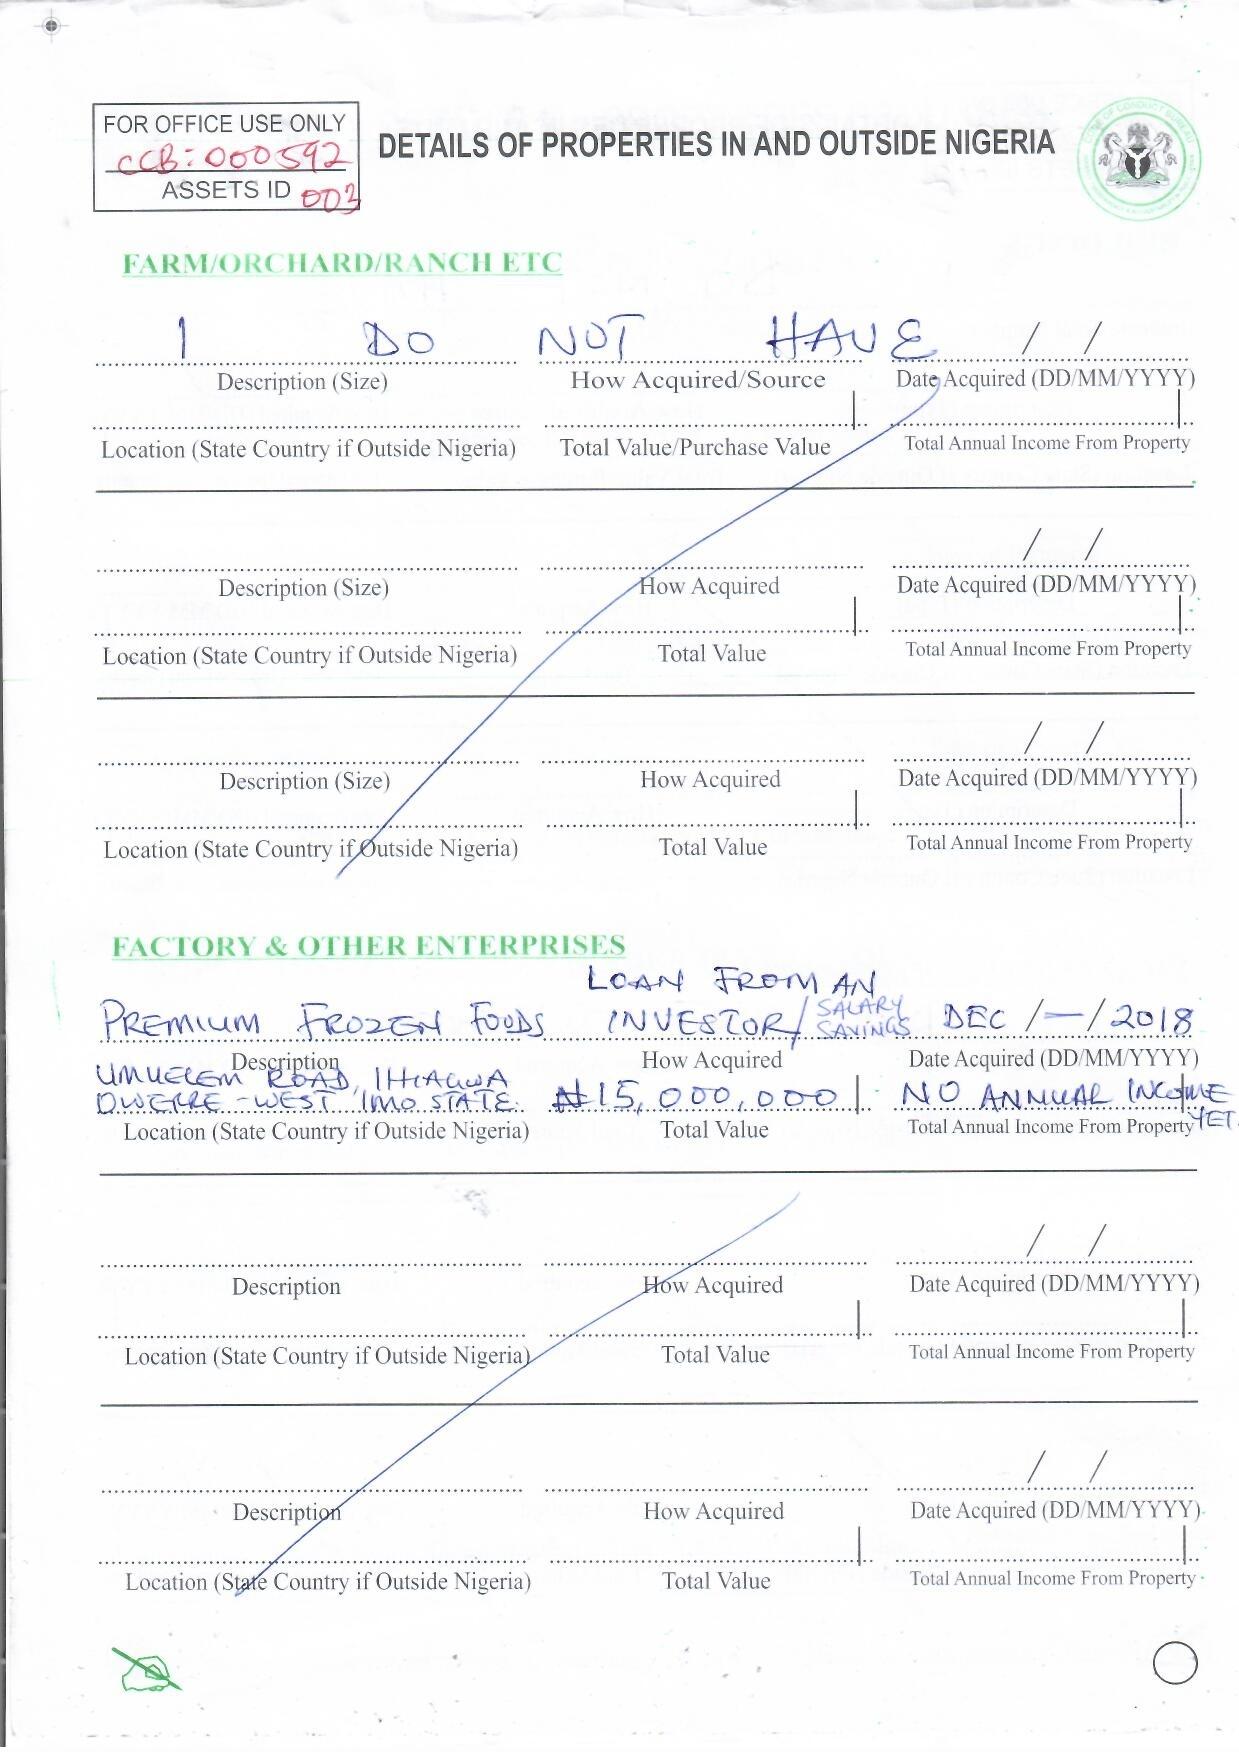 FOR OFFICE USE ONLY
CCB: 000592
ASSETS ID 003
DETAILS OF PROPERTIES IN AND OUTSIDE NIGERIA
CODE OF CONDUCT BUREAU
FARM/ORCHARD/RANCH ETC
I DO NOT HAVE / /
Description (Size) How Acquired/Source Date Acquired (DD/MM/YYYY)
Location (State Country if Outside Nigeria) Total Value/Purchase Value Total Annual Income From Property
/ /
Description (Size) How Acquired Date Acquired (DD/MM/YYYY)
Location (State Country if Outside Nigeria) Total Value Total Annual Income From Property
/ /
Description (Size) How Acquired Date Acquired (DD/MM/YYYY)
Location (State Country if Outside Nigeria) Total Value Total Annual Income From Property
FACTORY & OTHER ENTERPRISES
LOAN FROM AN
PREMIUM FROZEN FOODS INVESTOR/SALARY SAVINGS DEC /-/ 2018
Description How Acquired Date Acquired (DD/MM/YYYY)
UMUELEM ROAD, IHIAGWA
OWERRE-WEST IMO STATE. ₦15,000,000 NO ANNUAL INCOME YET
Location (State Country if Outside Nigeria) Total Value Total Annual Income From Property
/ /
Description How Acquired Date Acquired (DD/MM/YYYY)
Location (State Country if Outside Nigeria) Total Value Total Annual Income From Property
/ /
Description How Acquired Date Acquired (DD/MM/YYYY)
Location (State Country if Outside Nigeria) Total Value Total Annual Income From Property